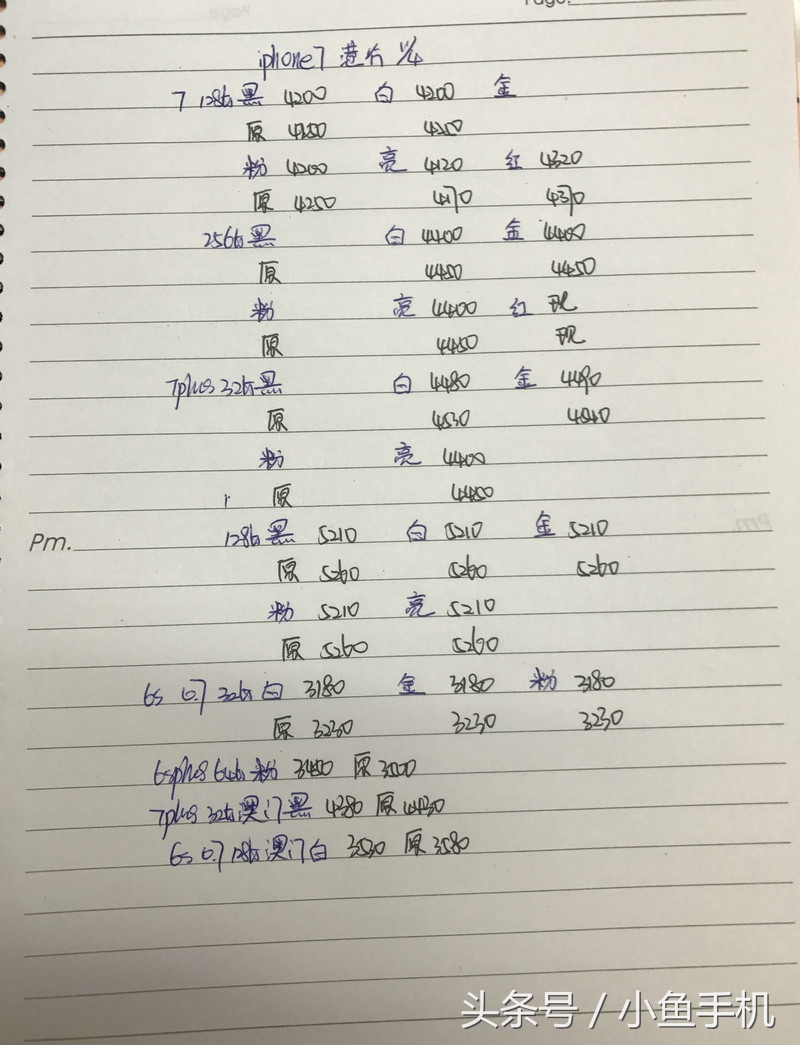 iphone7 港行 14/4
7 128G 黑 4200 白 4200 金
原 4250 4250
粉 4200 亮 4120 红 4320
原 4250 4170 4370
256G 黑 白 4400 金 4400
原 4450 4450
粉 亮 4400 红 现
原 4450 现
7plus 32G 黑 白 4480 金 4490
原 4530 4540
粉 亮 4400
原 4450
Pm. 128G 黑 5210 白 5210 金 5210
原 5260 5260 5260
粉 5210 亮 5210
原 5260 5260
6s 0.7 32G 白 3180 金 3180 粉 3180
原 3230 3230 3230
6splus 64G 粉 3450 原 3500
7plus 32G 澳门 黑 4380 原 4430
6s 0.7 128G 澳门 白 3530 原 3580
头条号 / 小鱼手机